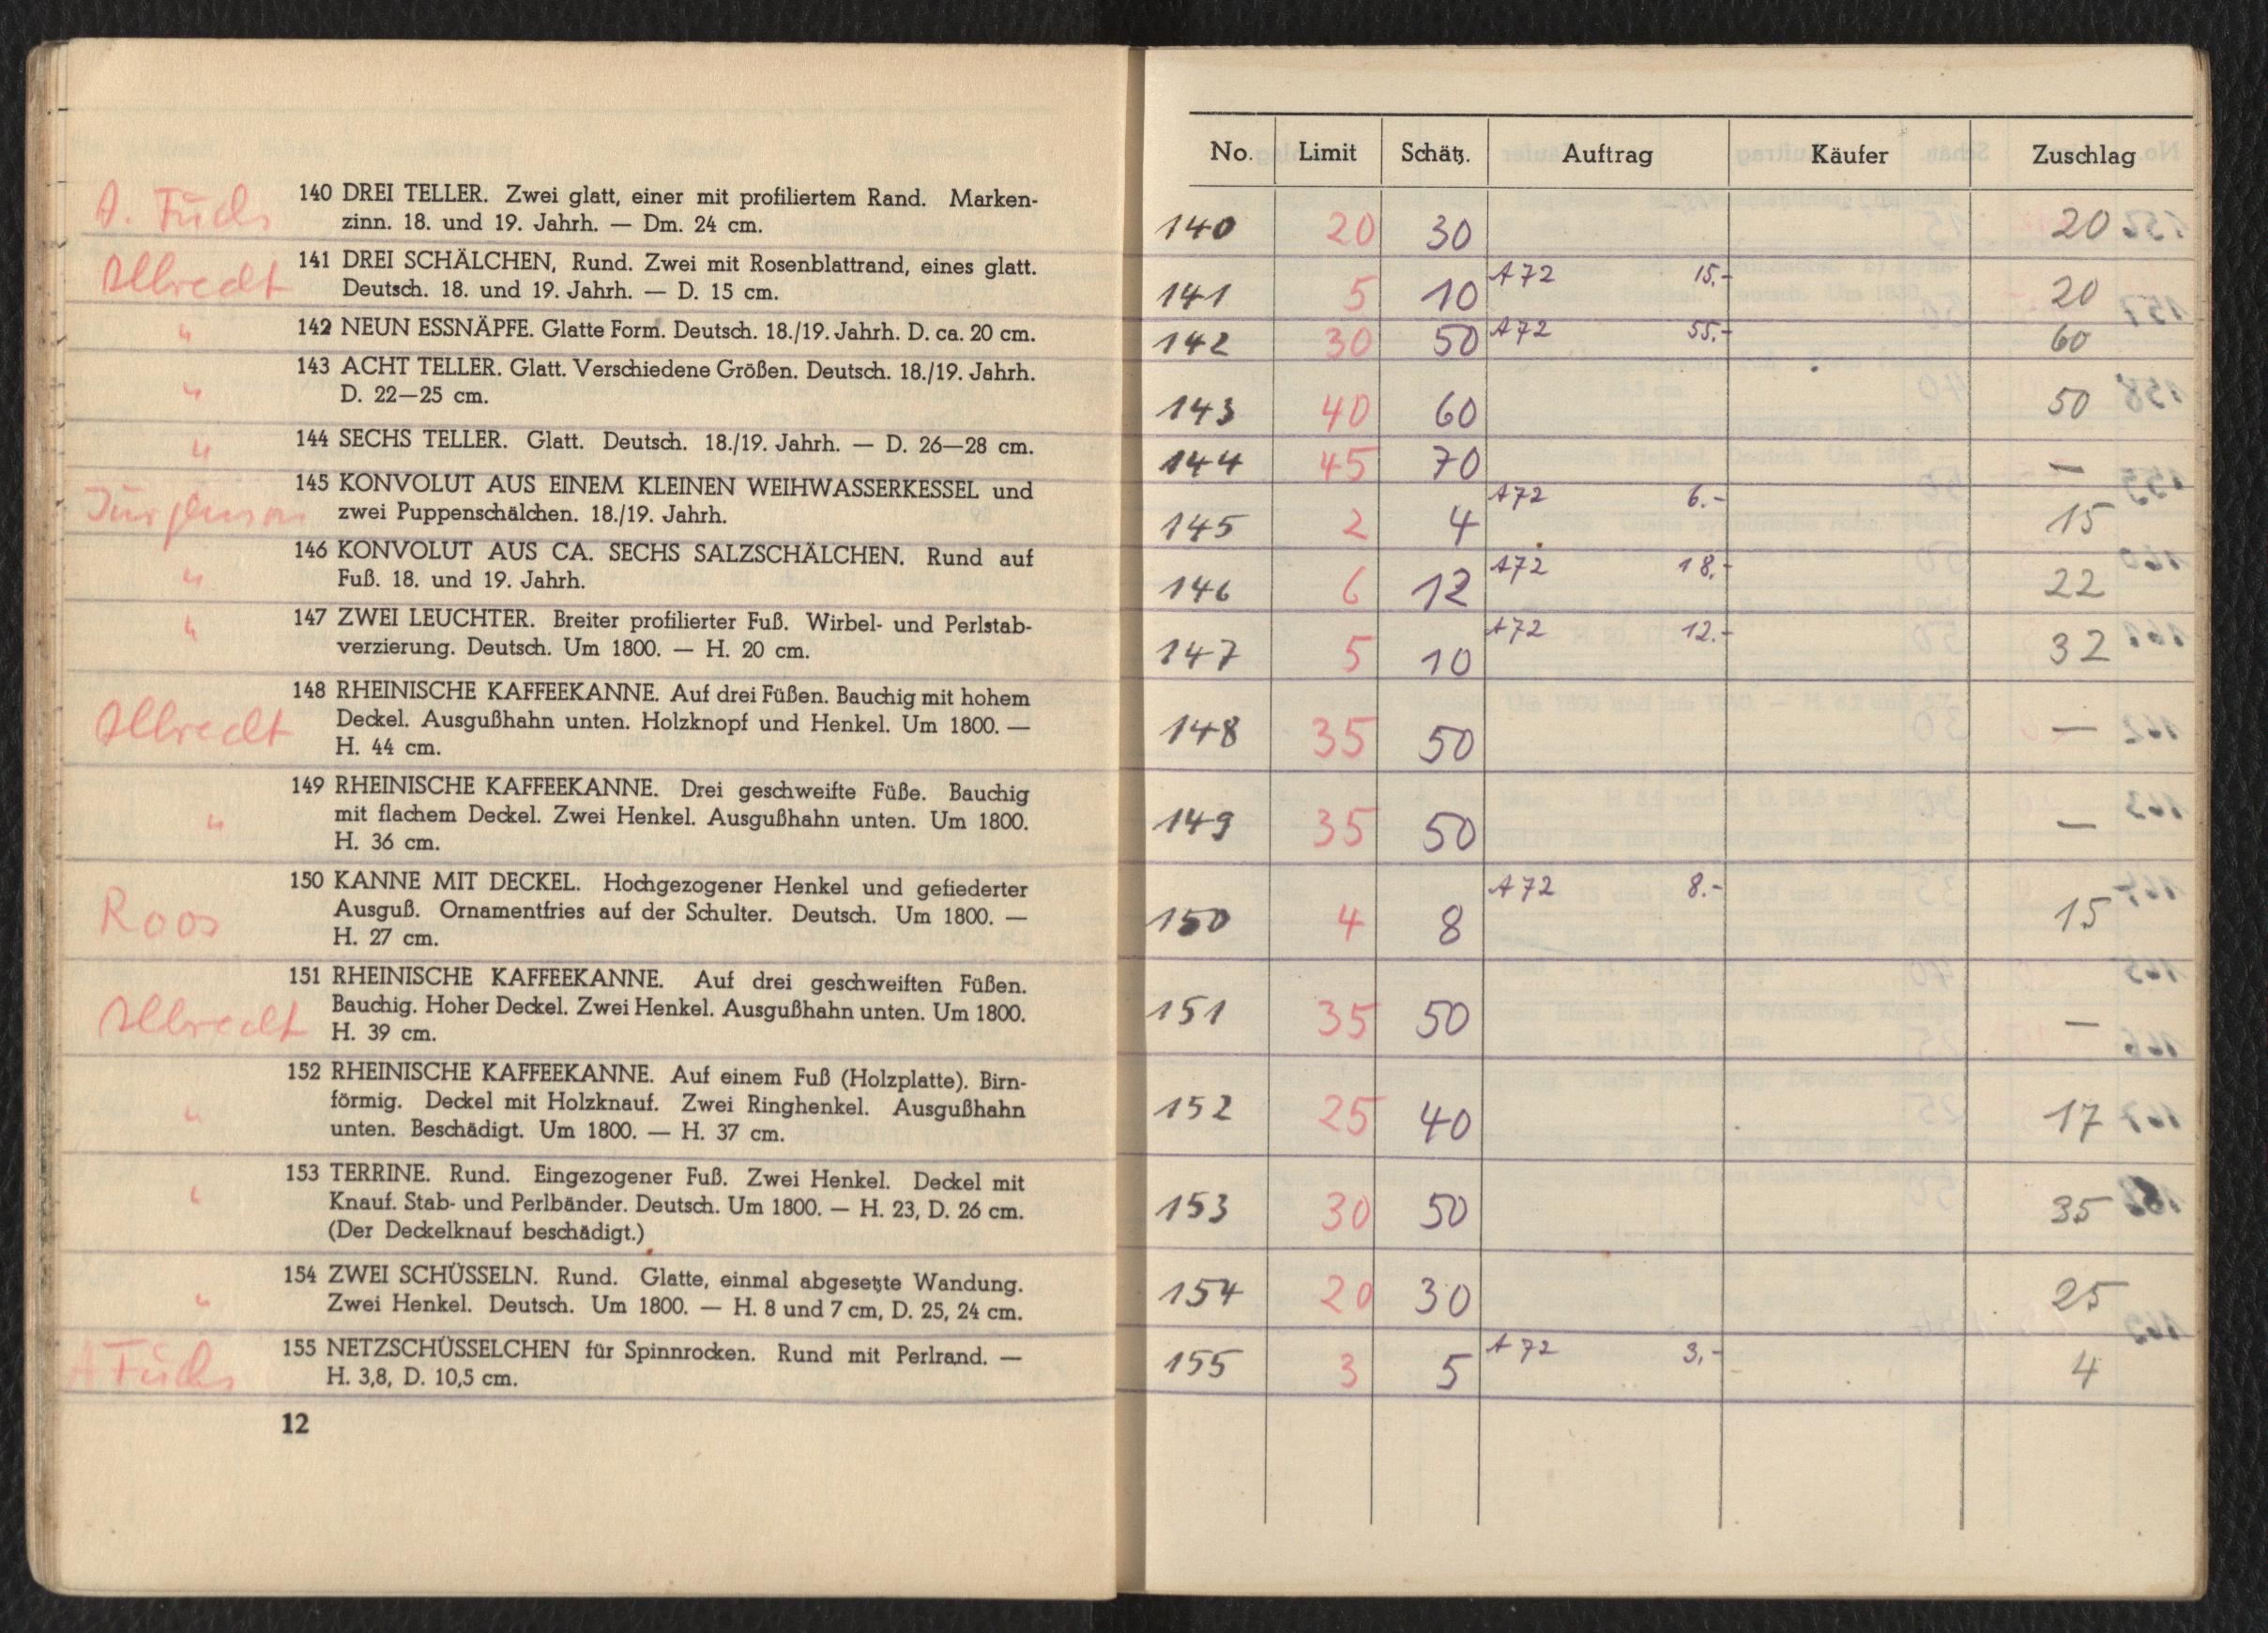 A. Fuchs
140 DREI TELLER. Zwei glatt, einer mit profiliertem Rand. Marken-
zinn. 18. und 19. Jahrh. — Dm. 24 cm.
Albrecht
141 DREI SCHÄLCHEN, Rund. Zwei mit Rosenblattrand, eines glatt.
Deutsch. 18. und 19. Jahrh. — D. 15 cm.
" 142 NEUN ESSNÄPFE. Glatte Form. Deutsch. 18./19. Jahrh. D. ca. 20 cm.
143 ACHT TELLER. Glatt. Verschiedene Größen. Deutsch. 18./19. Jahrh.
" D. 22—25 cm.
" 144 SECHS TELLER. Glatt. Deutsch. 18./19. Jahrh. — D. 26—28 cm.
145 KONVOLUT AUS EINEM KLEINEN WEIHWASSERKESSEL und
zwei Puppenschälchen. 18./19. Jahrh.
146 KONVOLUT AUS CA. SECHS SALZSCHÄLCHEN. Rund auf
" Fuß. 18. und 19. Jahrh.
" 147 ZWEI LEUCHTER. Breiter profilierter Fuß. Wirbel- und Perlstab-
verzierung. Deutsch. Um 1800. — H. 20 cm.
148 RHEINISCHE KAFFEEKANNE. Auf drei Füßen. Bauchig mit hohem
Albrecht Deckel. Ausgußhahn unten. Holzknopf und Henkel. Um 1800. —
H. 44 cm.
149 RHEINISCHE KAFFEEKANNE. Drei geschweifte Füße. Bauchig
" mit flachem Deckel. Zwei Henkel. Ausgußhahn unten. Um 1800.
H. 36 cm.
150 KANNE MIT DECKEL. Hochgezogener Henkel und gefiederter
Roos Ausguß. Ornamentfries auf der Schulter. Deutsch. Um 1800. —
H. 27 cm.
151 RHEINISCHE KAFFEEKANNE. Auf drei geschweiften Füßen.
Albrecht Bauchig. Hoher Deckel. Zwei Henkel. Ausgußhahn unten. Um 1800.
H. 39 cm.
152 RHEINISCHE KAFFEEKANNE. Auf einem Fuß (Holzplatte). Birn-
" förmig. Deckel mit Holzknauf. Zwei Ringhenkel. Ausgußhahn
unten. Beschädigt. Um 1800. — H. 37 cm.
153 TERRINE. Rund. Eingezogener Fuß. Zwei Henkel. Deckel mit
" Knauf. Stab- und Perlbänder. Deutsch. Um 1800. — H. 23, D. 26 cm.
(Der Deckelknauf beschädigt.)
154 ZWEI SCHÜSSELN. Rund. Glatte, einmal abgesetzte Wandung.
" Zwei Henkel. Deutsch. Um 1800. — H. 8 und 7 cm, D. 25, 24 cm.
A Fuchs
155 NETZSCHÜSSELCHEN für Spinnrocken. Rund mit Perlrand. —
H. 3,8, D. 10,5 cm.
12
No. Limit Schätz. Auftrag Käufer Zuschlag
140 20 30 20
141 5 10 A72 15.- 20
142 30 50 A72 55.- 60
143 40 60 50
144 45 70 —
145 2 4 A72 6.- 15
146 6 12 A72 18.- 22
147 5 10 A72 12.- 32
148 35 50 —
149 35 50 —
150 4 8 A72 8.- 15
151 35 50 —
152 25 40 17
153 30 50 35
154 20 30 25
155 3 5 A72 3,- 4